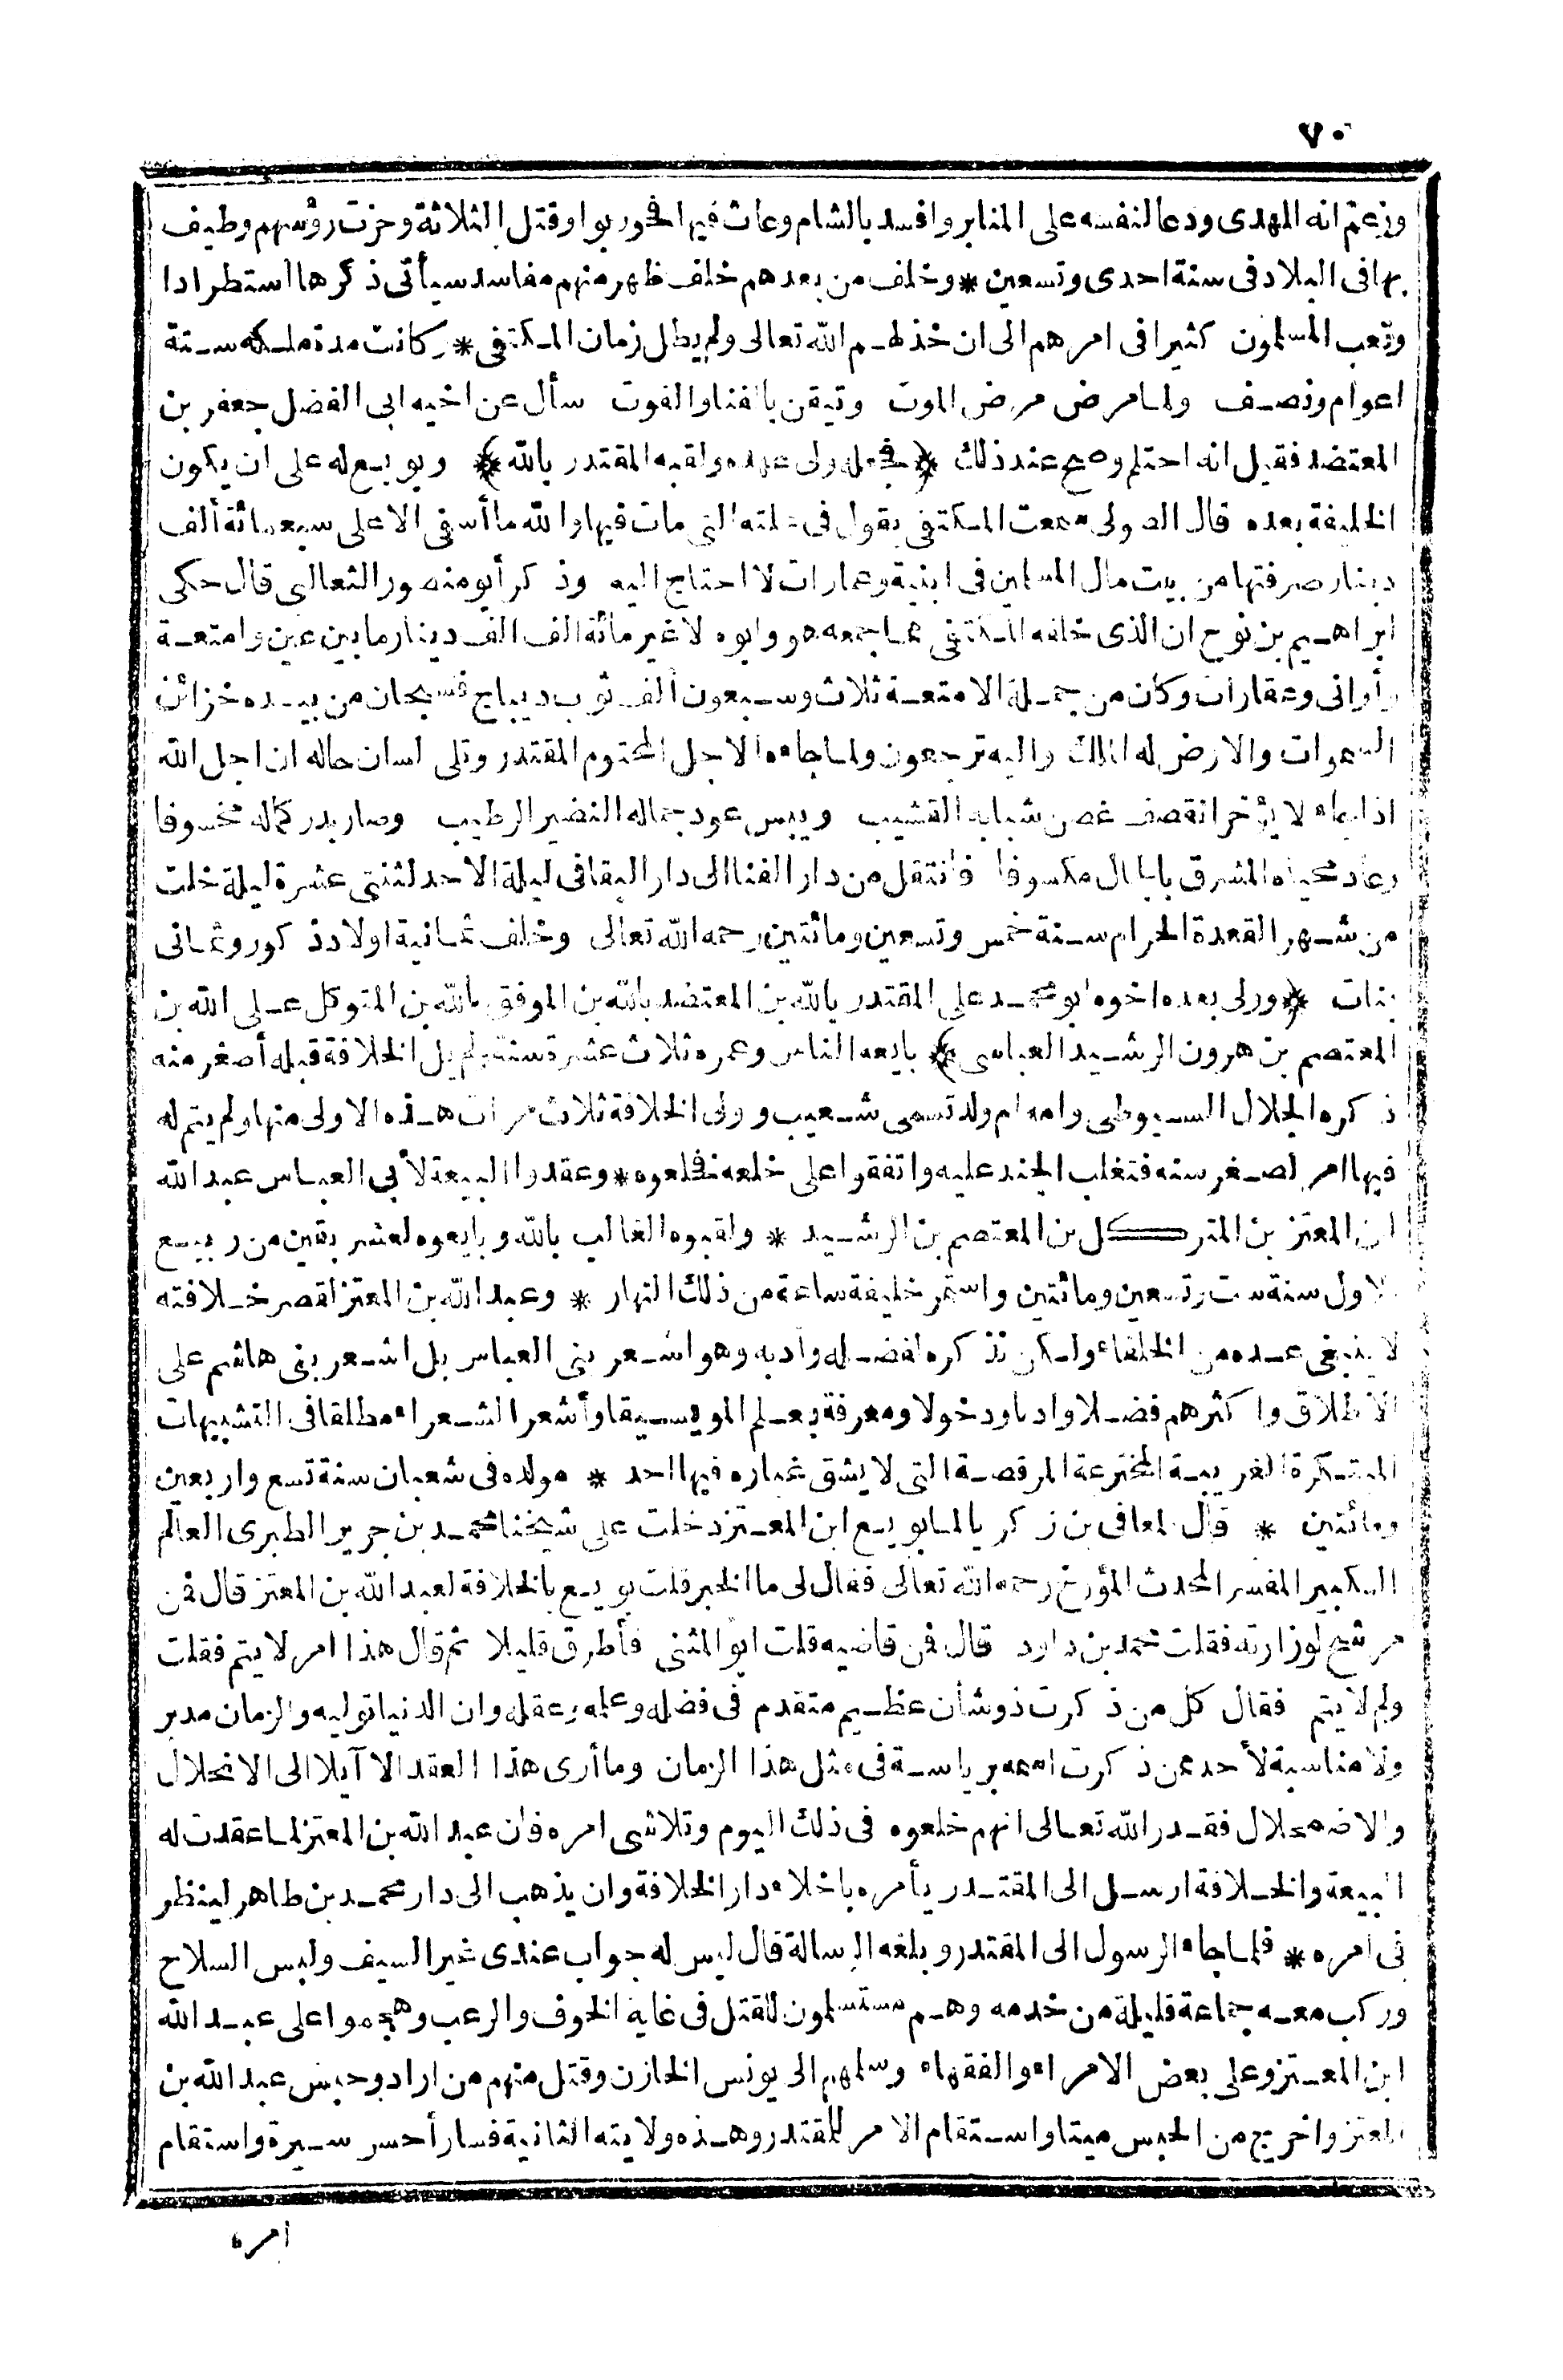 ٧٠
وزعم انه المهدى ودعا لنفسه على المنابر وافسد بالشام وعاث فيها فحوربوا وقتل الثلاثة وحزت رؤسهم وطيف
بها فى البلاد فى سنة احدى وتسعين * وخلف من بعدهم خلف ظهر منهم مفاسد سيأتى ذكرها استطرادا
وتعب المسلمون كثيرا فى امرهم الى ان خذلهم الله تعالى ولم يطل زمان المكتفى * وكانت مدة ملكه ستة
اعوام ونصف ولما مرض مرض الموت وتيقن بالفنا والفوت سأل عن اخيه ابى الفضل جعفر بن
المعتضد فقيل انه احتلم وصح عند ذلك ﴿ فجعله ولى عهده ولقبه المقتدر بالله ﴾ وبويع له على ان يكون
الخليفة بعده قال الصولى سمعت المكتفى يقول فى علته التى مات فيها والله ما أسفى الا على سبعمائة ألف
دينار صرفتها من بيت مال المسلمين فى ابنية وعمارات لا احتاج اليه وذكر أبو منصور الثعالبى قال حكى
ابراهيم بن نوح ان الذى خلفه المكتفى مما جمعه هو وابوه لا غير مائة الف الف دينار ما بين عين وامتعة
وأوانى وعقارات وكان من جملة الامتعة ثلاث وسبعون ألف ثوب ديباج فسبحان من بيده خزائن
السموات والارض له الملك واليه ترجعون ولما جاءه الاجل المحتوم المقتدر وتلى لسان حاله ان اجل الله
اذا جاء لا يؤخر انقصف غصن شبابه القشيب ويبس عود جماله النضير الرطيب وصار بدر كماله مخسوفا
وعاد محياه المشرق بالجمال مكسوفا فانتقل من دار الفنا الى دار البقا فى ليلة الاحد لثنتى عشرة ليلة خلت
من شهر القعدة الحرام سنة خمس وتسعين ومائتين رحمه الله تعالى وخلف ثمانية اولاد ذكور وثمانى
بنات ﴿ وولى بعده اخوه ابو محمد على المقتدر بالله بن المعتضد بالله بن الموفق بالله بن المتوكل على الله بن
المعتصم بن هرون الرشيد العباسى ﴾ بايعه الناس وعمره ثلاث عشرة سنة ولم يل الخلافة قبله أصغر منه
ذكره الجلال السيوطى وامه ام ولد تسمى شعيب وولى الخلافة ثلاث مرات هذه الاولى منها ولم يتم له
فيها امر لصغر سنه فتغلب الجند عليه واتفقوا على خلعه فخلعوه * وعقدوا البيعة لأبى العباس عبد الله
ابن المعتز بن المتوكل بن المعتصم بن الرشيد * ولقبوه الغالب بالله وبايعوه لعشر بقين من ربيع
الاول سنة ست وتسعين ومائتين واستمر خليفة ساعة من ذلك النهار * وعبد الله بن المعتز لقصر خلافته
لا ينبغى عده من الخلفاء ولكن نذكره لفضله وأدبه وهو اشعر بنى العباس بل اشعر بنى هاشم على
الاطلاق واكثرهم فضلا وادبا ودخولا ومعرفة بعلم الموسيقا وأشعر الشعراء مطلقا فى التشبيهات
المبتكرة الغريبة المخترعة المرقصة التى لا يشق غباره فيها احد * مولده فى شعبان سنة تسع واربعين
ومائتين * قال المعافى بن زكريا لما بويع ابن المعتز دخلت على شيخنا محمد بن جرير الطبرى العالم
الكبير المفسر المحدث المؤرخ رحمه الله تعالى فقال لى ما الخبر قلت بويع بالخلافة لعبد الله بن المعتز قال فمن
مرشح لوزارته فقلت محمد بن داود قال فمن قاضيه قلت ابو المثنى فأطرق قليلا ثم قال هذا امر لا يتم فقلت
ولم لا يتم فقال كل من ذكرت ذو شأن عظيم متقدم فى فضله وعلمه وعقله وان الدنيا توليه والزمان مدبر
ولا مناسبة لأحد ممن ذكرت اسمه برياسة فى مثل هذا الزمان وما أرى هذا العقد الا آيلا الى الانحلال
والاضمحلال فقدر الله تعالى انهم خلعوه فى ذلك اليوم وتلاشى امره فان عبد الله بن المعتز لما عقدت له
البيعة والخلافة ارسل الى المقتدر يأمره باخلاء دار الخلافة وان يذهب الى دار محمد بن طاهر لينظر
فى امره * فلما جاء الرسول الى المقتدر وبلغه الرسالة قال ليس له جواب عندى غير السيف ولبس السلاح
وركب معه جماعة قليلة من خدمه وهم مستسلمون للقتل فى غاية الخوف والرعب وهجموا على عبد الله
ابن المعتز وعلى بعض الامراء والفقهاء وسلمهم الى يونس الخازن وقتل منهم من اراد وحبس عبد الله بن
المعتز واخرج من الحبس ميتا واستقام الامر للمقتدر وهذه ولايته الثانية فسار أحسن سيرة واستقام
امره